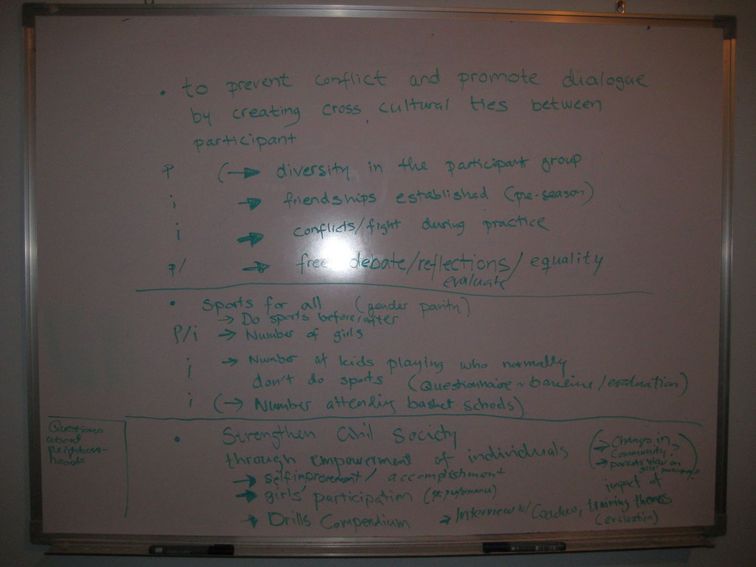 • to prevent conflict and promote dialogue
by creating cross, cultural ties between
participant
P (→ diversity in the participant group
i → friendships established (pre-season)
i → conflicts/fight during practice
P/ → free debate/reflections/equality
evaluate
• Sports for all (gender parity)
→ Do sports before/after
P/i → Number of girls
i → Number of kids playing who normally
don't do sports (Questionnaire ~ baseline/evaluation)
i (→ Number attending basket schools)
Questions
about
neighbor-
hoods
• Strengthen Civil Society
through empowerment of individuals
(→ Changes in
community,
→ parents view on
→ self improvement/accomplishment
→ girls' participation
impact of
→ Drills Compendium → Interview w/ Coaches, training themes
(evaluation)